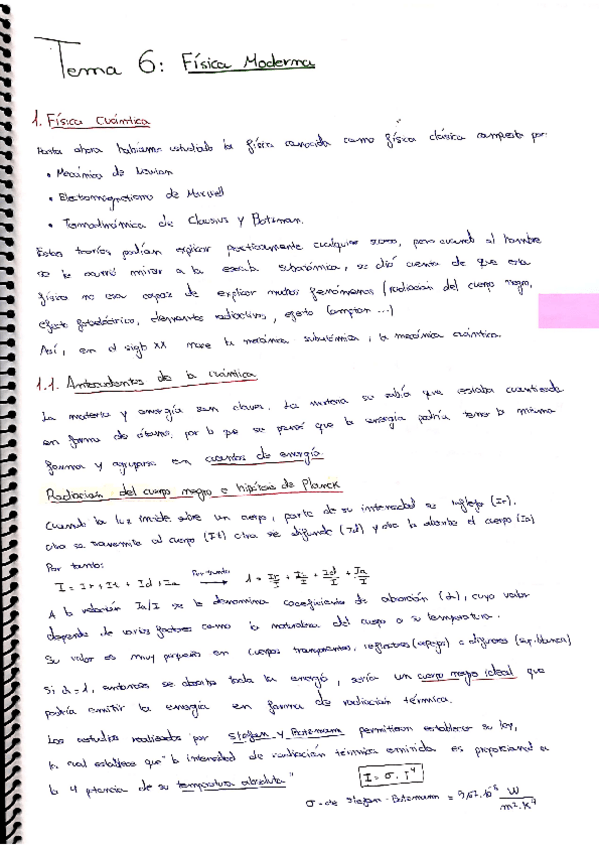 Tema 6: Física Moderna
1. Física Cuántica
Hasta ahora habíamos estudiado la física conocida como física clásica compuesta por:
• Mecánica de Newton
• Electromagnetismo de Maxwell
• Termodinámica de Clausius y Botzman.
Estas teorías podían explicar practicamente cualquier, pero cuando al hombre
se le ocurrió mirar a la escala subatómica, se dió cuenta de que esta
física no era capaz de explicar muchos fenómenos (radiación del cuerpo negro,
efecto fotoeléctrico, elementos radiactivos, efecto Compton ...)
Así, en el siglo XX nace la mecánica subatómica, la mecánica cuántica.
1.1. Antecedentes de la cuántica
La materia y energía son claves. La materia se sabía que estaba cuantizada
en forma de átomos, por lo que se pensó que la energía podría tener la misma
forma y agruparse en cuantos de energía
Radiación del cuerpo negro e hipótesis de Planck
Cuando la luz incide sobre un cuerpo, parte de su intensidad se refleja (Ir),
otra se transmite al cuerpo (It) otra se difunde (Id) y otra la absorbe el cuerpo (Ia)
Por tanto:
I = Ir + It + Id + Ia Por tanto → 1 = Ir/I + It/I + Id/I + Ia/I
A la relación Ia/I se la denomina coeficiente de absorción (α), cuyo valor
depende de varios factores como la naturaleza del cuerpo o su temperatura.
Su valor es muy pequeño en cuerpos transparentes, reflectores (espejos) o difusores (sup. blanca)
Si α = 1, entonces se absorbe toda la energía, sería un cuerpo negro ideal que
podría emitir la energía en forma de radiación térmica.
Los estudios realizados por Stefan y Botzmann permitieron establecer su ley,
la cual establece que "la intensidad de radiación térmica emitida es proporcional a
la 4 potencia de su temperatura absoluta" I = σ · T⁴
σ - de Stefan - Botzmann = 5,67 · 10⁻⁸ W/m² · K⁴